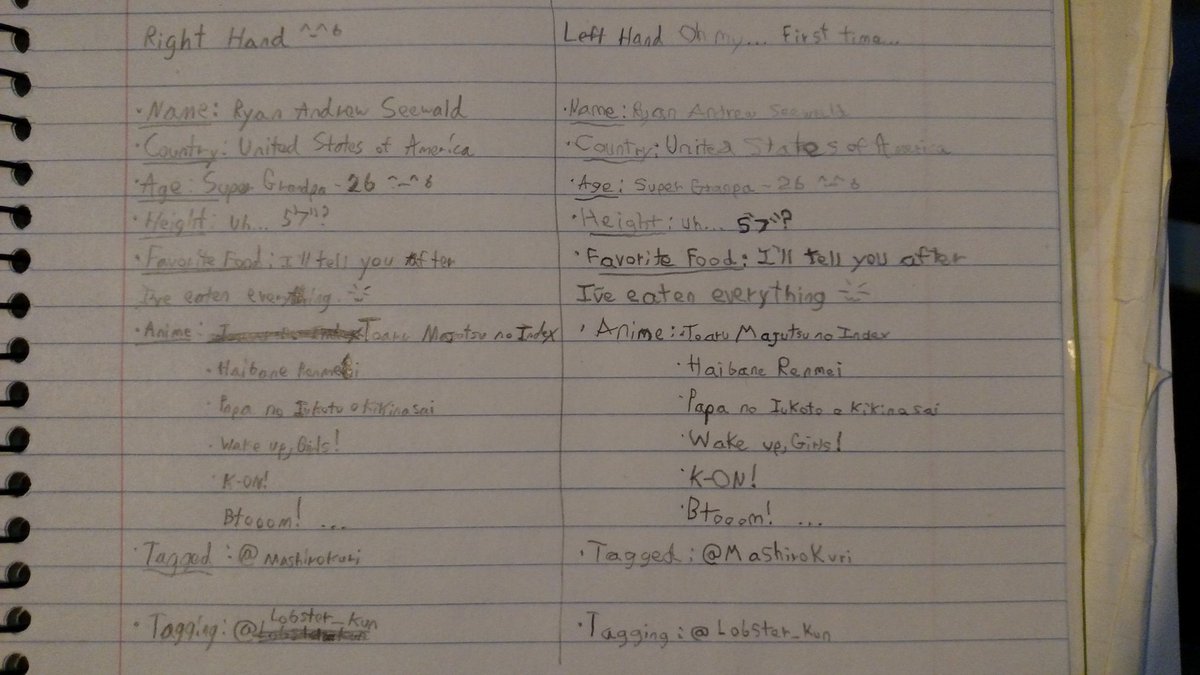 Right Hand ^-^6
·Name: Ryan Andrew Seewald
·Country: United States of America
·Age: Super Grandpa - 26 ^-^6
·Height: uh... 5'7"?
·Favorite Food: I'll tell you after
I've eaten everything.
·Anime: Toaru Majutsu no Index
·Haibane Renmei
·Papa no Iukoto o Kikinasai
·Wake up, Girls!
·K-ON!
Btooom! ...
·Tagged: @Mashirokuri
·Tagging: @Lobster_Kun
Left Hand Oh my... First time...
·Name: Ryan Andrew Seewald
·Country: United States of America
·Age: Super Granpa - 26 ^-^6
·Height: uh... 5'7"?
·Favorite Food: I'll tell you after
I've eaten everything
·Anime: Toaru Majutsu no Index
·Haibane Renmei
·Papa no Iukoto o Kikinasai
·Wake up, Girls!
·K-ON!
·Btooom! ...
·Tagged: @MashiroKuri
·Tagging: @Lobster_Kun